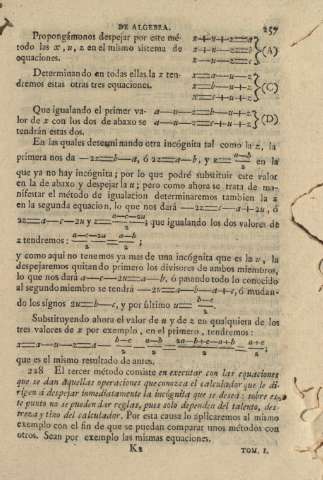 DE ALGEBRA. 259
Propongámonos despejar por este mé- x+u+z=a
todo las x, u, z en el mismo sistema de x+u-z=b (A)
equaciones. x-u-z=c
Determinando en todas ellas la x ten- x=a-u-z
dremos estas otras tres equaciones. x=b-u+z (C)
x=c+u+z
Que igualando el primer va- a-u-z=b-u+z (D)
lor de x con los dos de abaxo se a-u-z=c+u+z
tendrán estas dos.
En las quales determinando otra incógnita tal como la z, la
primera nos da -2z=b-a, ó 2z=a-b, y z=(a-b)/2 en la
que ya no hay incógnita; por lo que podré substituir este valor
en la de abaxo y despejar la u; pero como ahora se trata de ma-
nifestar el método de igualacion determinaremos tambien la z
en la segunda equacion, lo que nos dará -2z=c-a+2u, ó
2z=a-c-2u y z=(a-c-2u)/2; que igualando los dos valores de
z tendremos: (a-c-2u)/2=(a-b)/2;
y como aquí no tenemos ya mas de una incógnita que es la u, la
despejaremos quitando primero los divisores de ambos miembros,
lo que nos dará a-c-2u=a-b, ó pasando todo lo conocido
al segundo miembro se tendrá -2u=-b-a+c, ó mudan-
do los signos 2u=b-c, y por último u=(b-c)/2
Substituyendo ahora el valor de u y de z en qualquiera de los
tres valores de x por exemplo, en el primero, tendremos:
x=a-u-z=a-(b-c)/2-(a-b)/2=(2a-b+c-a+b)/2=(a+c)/2;
que es el mismo resultado de antes.
228 El tercer método consiste en executar con las equaciones
que se dan aquellas operaciones que conozca el calculador que le di-
rigen á despejar inmediatamente la incógnita que se desea: sobre es-
te punto no se pueden dar reglas, pues solo dependen del talento, des-
treza y tino del calculador. Por esta causa lo aplicaremos al mismo
exemplo con el fin de que se puedan comparar unos métodos con
otros. Sean por exemplo las mismas equaciones.
K2 TOM. I.